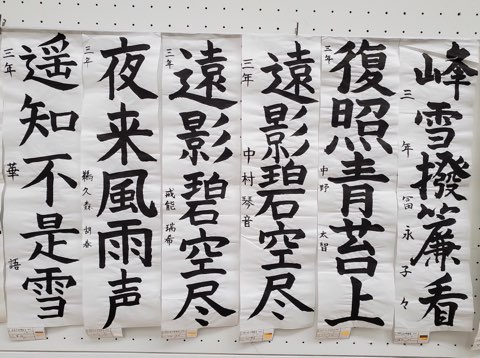 峰雪撥簾看
三年 冨永子々
復照青苔上
三年 中野 太智
遠影碧空尽
三年 中村琴音
遠影碧空尽
三年 成能 瑞希
夜来風雨声
三年 鵜久森 胡春
遥知不是雪
三年 華語